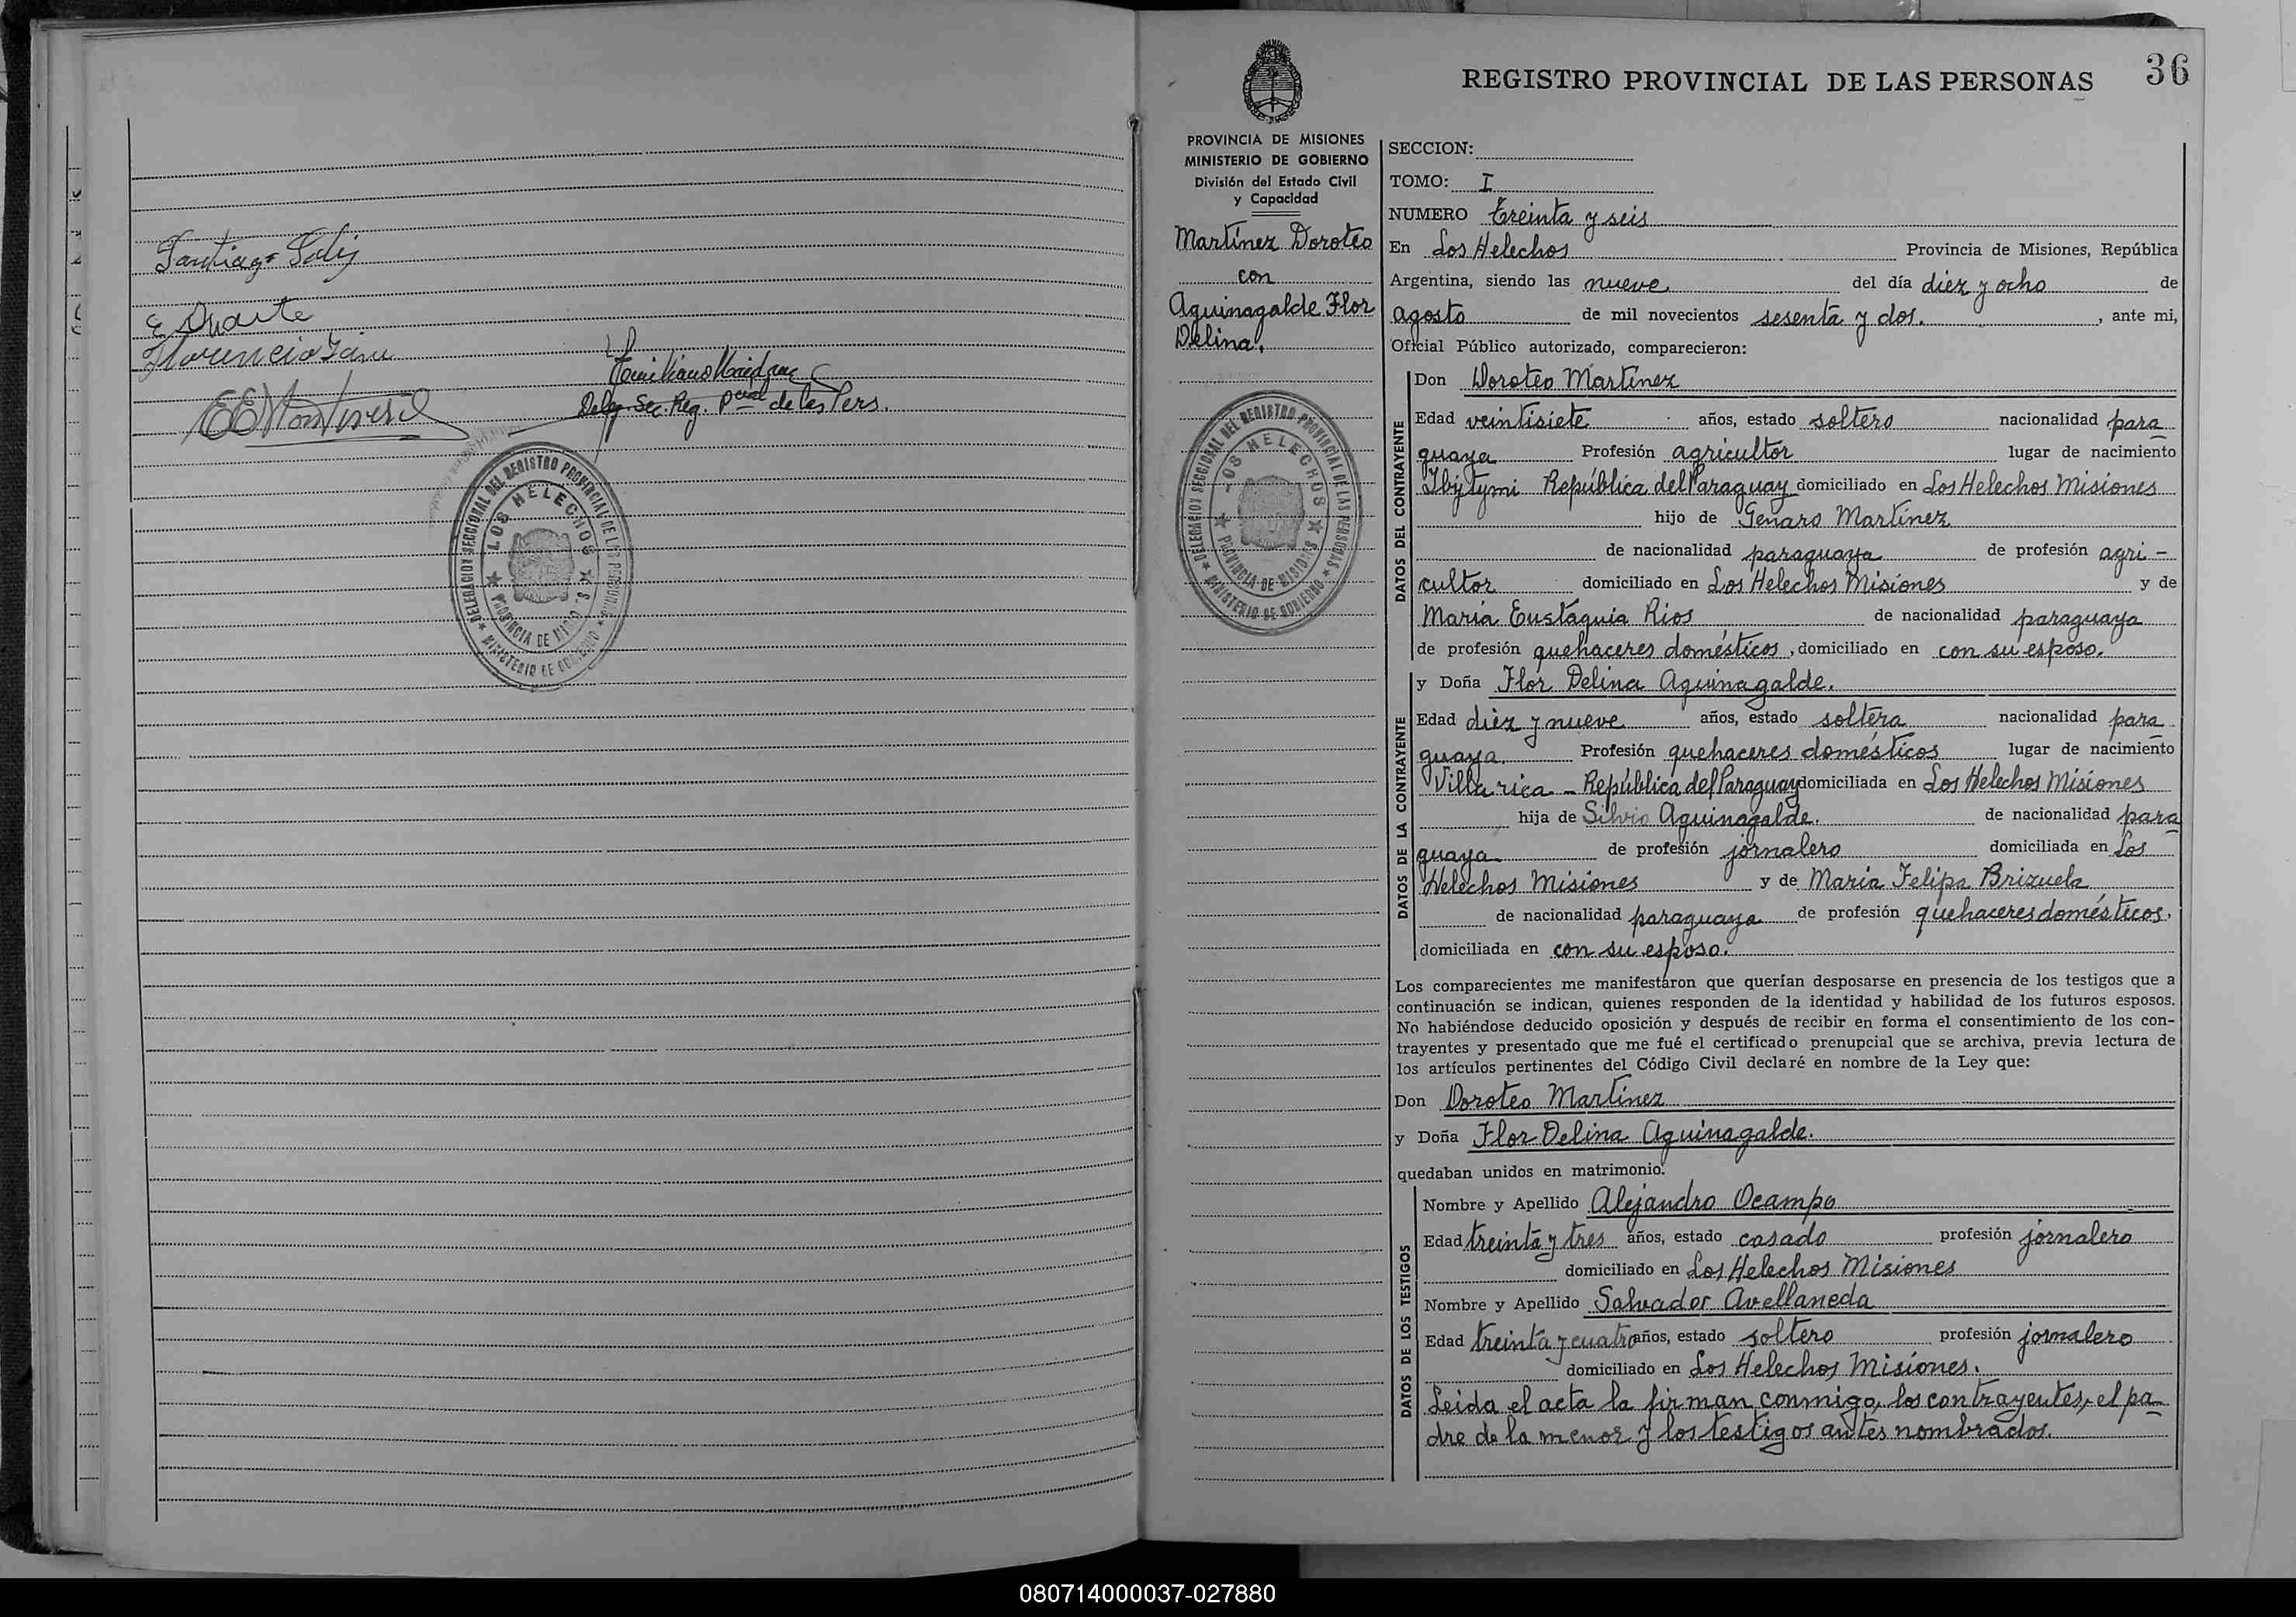 Santiago
E Duarte
Florencio
Deleg. Sec. Reg. Pcial de las Pers.
DELEGACION SECCIONAL DEL REGISTRO PROVINCIAL DE LAS PERSONAS
LOS HELECHOS
PROVINCIA DE MISIONES
MINISTERIO DE GOBIERNO
36
REGISTRO PROVINCIAL DE LAS PERSONAS
PROVINCIA DE MISIONES
MINISTERIO DE GOBIERNO
División del Estado Civil
y Capacidad
Martínez Doroteo
con
Aguinagalde Flor
Delina.
DELEGACION SECCIONAL DEL REGISTRO PROVINCIAL DE LAS PERSONAS
LOS HELECHOS
PROVINCIA DE MISIONES
MINISTERIO DE GOBIERNO
SECCION:
TOMO: I
NUMERO Treinta y seis
En Los Helechos Provincia de Misiones, República
Argentina, siendo las nueve del día diez y ocho de
agosto de mil novecientos sesenta y dos. , ante mi,
Oficial Público autorizado, comparecieron:
DATOS DEL CONTRAYENTE
Don Doroteo Martínez
Edad veintisiete años, estado soltero nacionalidad para
guaya Profesión agricultor lugar de nacimiento
Ibytymi República del Paraguay domiciliado en Los Helechos Misiones
hijo de Genaro Martínez
de nacionalidad paraguaya de profesión agri-
cultor domiciliado en Los Helechos Misiones y de
María Eustaquia Rios de nacionalidad paraguaya
de profesión quehaceres domésticos, domiciliado en con su esposo.
DATOS DE LA CONTRAYENTE
y Doña Flor Delina Aguinagalde.
Edad diez y nueve años, estado soltera nacionalidad para
guaya. Profesión quehaceres domésticos lugar de nacimiento
Villa rica - República del Paraguay domiciliada en Los Helechos Misiones
hija de Silvio Aguinagalde. de nacionalidad para
guaya de profesión jornalero domiciliada en Los
Helechos Misiones y de María Felipa Brizuela
de nacionalidad paraguaya de profesión quehaceres domésticos,
domiciliada en con su esposo.
Los comparecientes me manifestaron que querían desposarse en presencia de los testigos que a
continuación se indican, quienes responden de la identidad y habilidad de los futuros esposos.
No habiéndose deducido oposición y después de recibir en forma el consentimiento de los con-
trayentes y presentado que me fué el certificado prenupcial que se archiva, previa lectura de
los artículos pertinentes del Código Civil declaré en nombre de la Ley que:
Don Doroteo Martínez
y Doña Flor Delina Aguinagalde.
quedaban unidos en matrimonio.
DATOS DE LOS TESTIGOS
Nombre y Apellido Alejandro Ocampo
Edad treinta y tres años, estado casado profesión jornalero
domiciliado en Los Helechos Misiones
Nombre y Apellido Salvador Avellaneda
Edad treinta y cuatro años, estado soltero profesión jornalero
domiciliado en Los Helechos Misiones.
Leida el acta la firman conmigo, los contrayentes, el pa
dre de la menor y los testigos antes nombrados.
080714000037-027880